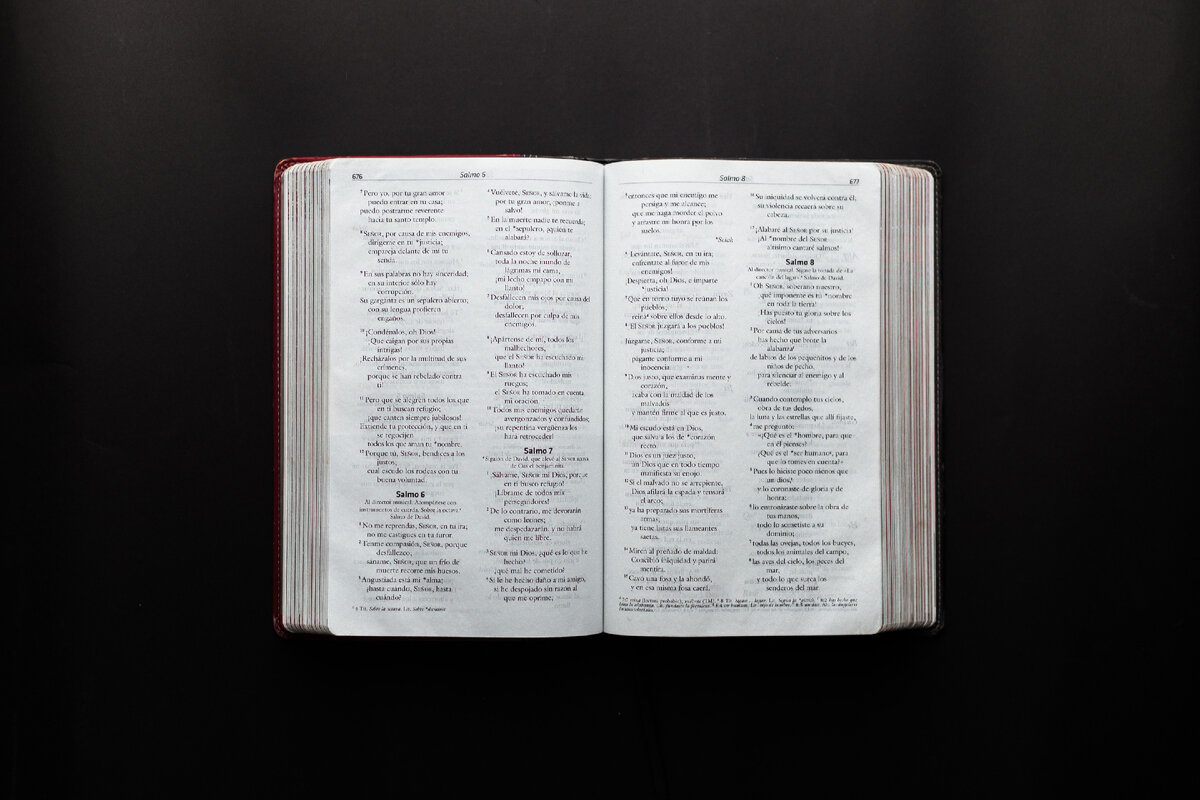 676
Salmo 6
⁷ Pero yo, por tu gran amor
puedo entrar en tu casa;
puedo postrarme reverente
hacia tu santo templo.
⁸ SEÑOR, por causa de mis enemigos,
dirígeme en tu *justicia;
empareja delante de mí tu
senda.
⁹ En sus palabras no hay sinceridad;
en su interior sólo hay
corrupción.
Su garganta es un sepulcro abierto;
con su lengua profieren
engaños.
¹⁰ ¡Condénalos, oh Dios!
¡Que caigan por sus propias
intrigas!
¡Recházalos por la multitud de sus
crímenes,
porque se han rebelado contra
ti!
¹¹ Pero que se alegren todos los que
en ti buscan refugio;
¡que canten siempre jubilosos!
Extiende tu protección, y que en ti
se regocijen
todos los que aman tu *nombre.
¹² Porque tú, SEÑOR, bendices a los
justos;
cual escudo los rodeas con tu
buena voluntad.
Salmo 6
Al director musical. Acompáñese con
instrumentos de cuerda. Sobre la octava.
Salmo de David.
¹ No me reprendas, SEÑOR, en tu ira;
no me castigues en tu furor.
² Tenme compasión, SEÑOR, porque
desfallezco;
sáname, SEÑOR, que un frío de
muerte recorre mis huesos.
³ Angustiada está mi *alma;
¿hasta cuándo, SEÑOR, hasta
cuándo?
⁴ Vuélvete, SEÑOR, y sálvame la vida;
por tu gran amor, ¡ponme a
salvo!
⁵ En la muerte nadie te recuerda;
en el *sepulcro, ¿quién te
alabará?
⁶ Cansado estoy de sollozar;
toda la noche inundo de
lágrimas mi cama,
¡mi lecho empapo con mi
llanto!
⁷ Desfallecen mis ojos por causa del
dolor;
desfallecen por culpa de mis
enemigos.
⁸ ¡Apártense de mí, todos los
malhechores,
que el SEÑOR ha escuchado mi
llanto!
⁹ El SEÑOR ha escuchado mis
ruegos;
el SEÑOR ha tomado en cuenta
mi oración.
¹⁰ Todos mis enemigos quedarán
avergonzados y confundidos;
¡su repentina vergüenza los
hará retroceder!
Salmo 7
Sigaión de David, que elevó al SEÑOR acerca
de Cus el benjaminita.
¹ ¡Sálvame, SEÑOR mi Dios, porque
en ti busco refugio!
¡Líbrame de todos mis
perseguidores!
² De lo contrario, me devorarán
como leones;
me despedazarán, y no habrá
quien me libre.
³ SEÑOR mi Dios, ¿qué es lo que he
hecho?
¿qué mal he cometido?
⁴ Si le he hecho daño a mi amigo,
si he despojado sin razón al
que me oprime,
Salmo 8
677
⁵ entonces que mi enemigo me
persiga y me alcance;
que me haga morder el polvo
y arrastre mi honra por los
suelos.
*Selah
⁶ ¡Levántate, SEÑOR, en tu ira;
enfréntate al furor de mis
enemigos!
¡Despierta, oh Dios, e imparte
*justicia!
⁷ Que en torno tuyo se reúnan los
pueblos;
reina sobre ellos desde lo alto.
⁸ ¡El SEÑOR juzgará a los pueblos!
Júzgame, SEÑOR, conforme a mi
justicia;
págame conforme a mi
inocencia.
⁹ Dios justo, que examinas mente y
corazón,
acaba con la maldad de los
malvados
y mantén firme al que es justo.
¹⁰ Mi escudo está en Dios,
que salva a los de *corazón
recto.
¹¹ Dios es un juez justo,
un Dios que en todo tiempo
manifiesta su enojo.
¹² Si el malvado no se arrepiente,
Dios afilará la espada y tensará
el arco;
¹³ ya ha preparado sus mortíferas
armas;
ya tiene listas sus llameantes
saetas.
¹⁴ Miren al preñado de maldad:
Concibió iniquidad y parirá
mentira.
¹⁵ Cavó una fosa y la ahondó,
y en esa misma fosa caerá.
¹⁶ Su iniquidad se volverá contra él;
su violencia recaerá sobre su
cabeza.
¹⁷ ¡Alabaré al SEÑOR por su justicia!
¡Al *nombre del SEÑOR
altísimo cantaré salmos!
Salmo 8
Al director musical. Sígase la tonada de «La
canción del lagar». Salmo de David.
¹ Oh SEÑOR, soberano nuestro,
¡qué imponente es tu *nombre
en toda la tierra!
¡Has puesto tu gloria sobre los
cielos!
² Por causa de tus adversarios
has hecho que brote la
alabanza
de labios de los pequeñitos y de los
niños de pecho,
para silenciar al enemigo y al
rebelde.
³ Cuando contemplo tus cielos,
obra de tus dedos,
la luna y las estrellas que allí fijaste,
⁴ me pregunto:
«¿Qué es el *hombre, para que
en él pienses?
¿Qué es el *ser humano, para
que lo tomes en cuenta?»
⁵ Pues lo hiciste poco menos que
un dios,
y lo coronaste de gloria y de
honra;
⁶ lo entronizaste sobre la obra de
tus manos,
todo lo sometiste a su
dominio;
⁷ todas las ovejas, todos los bueyes,
todos los animales del campo,
⁸ las aves del cielo, los peces del
mar,
y todo lo que surca los
senderos del mar.